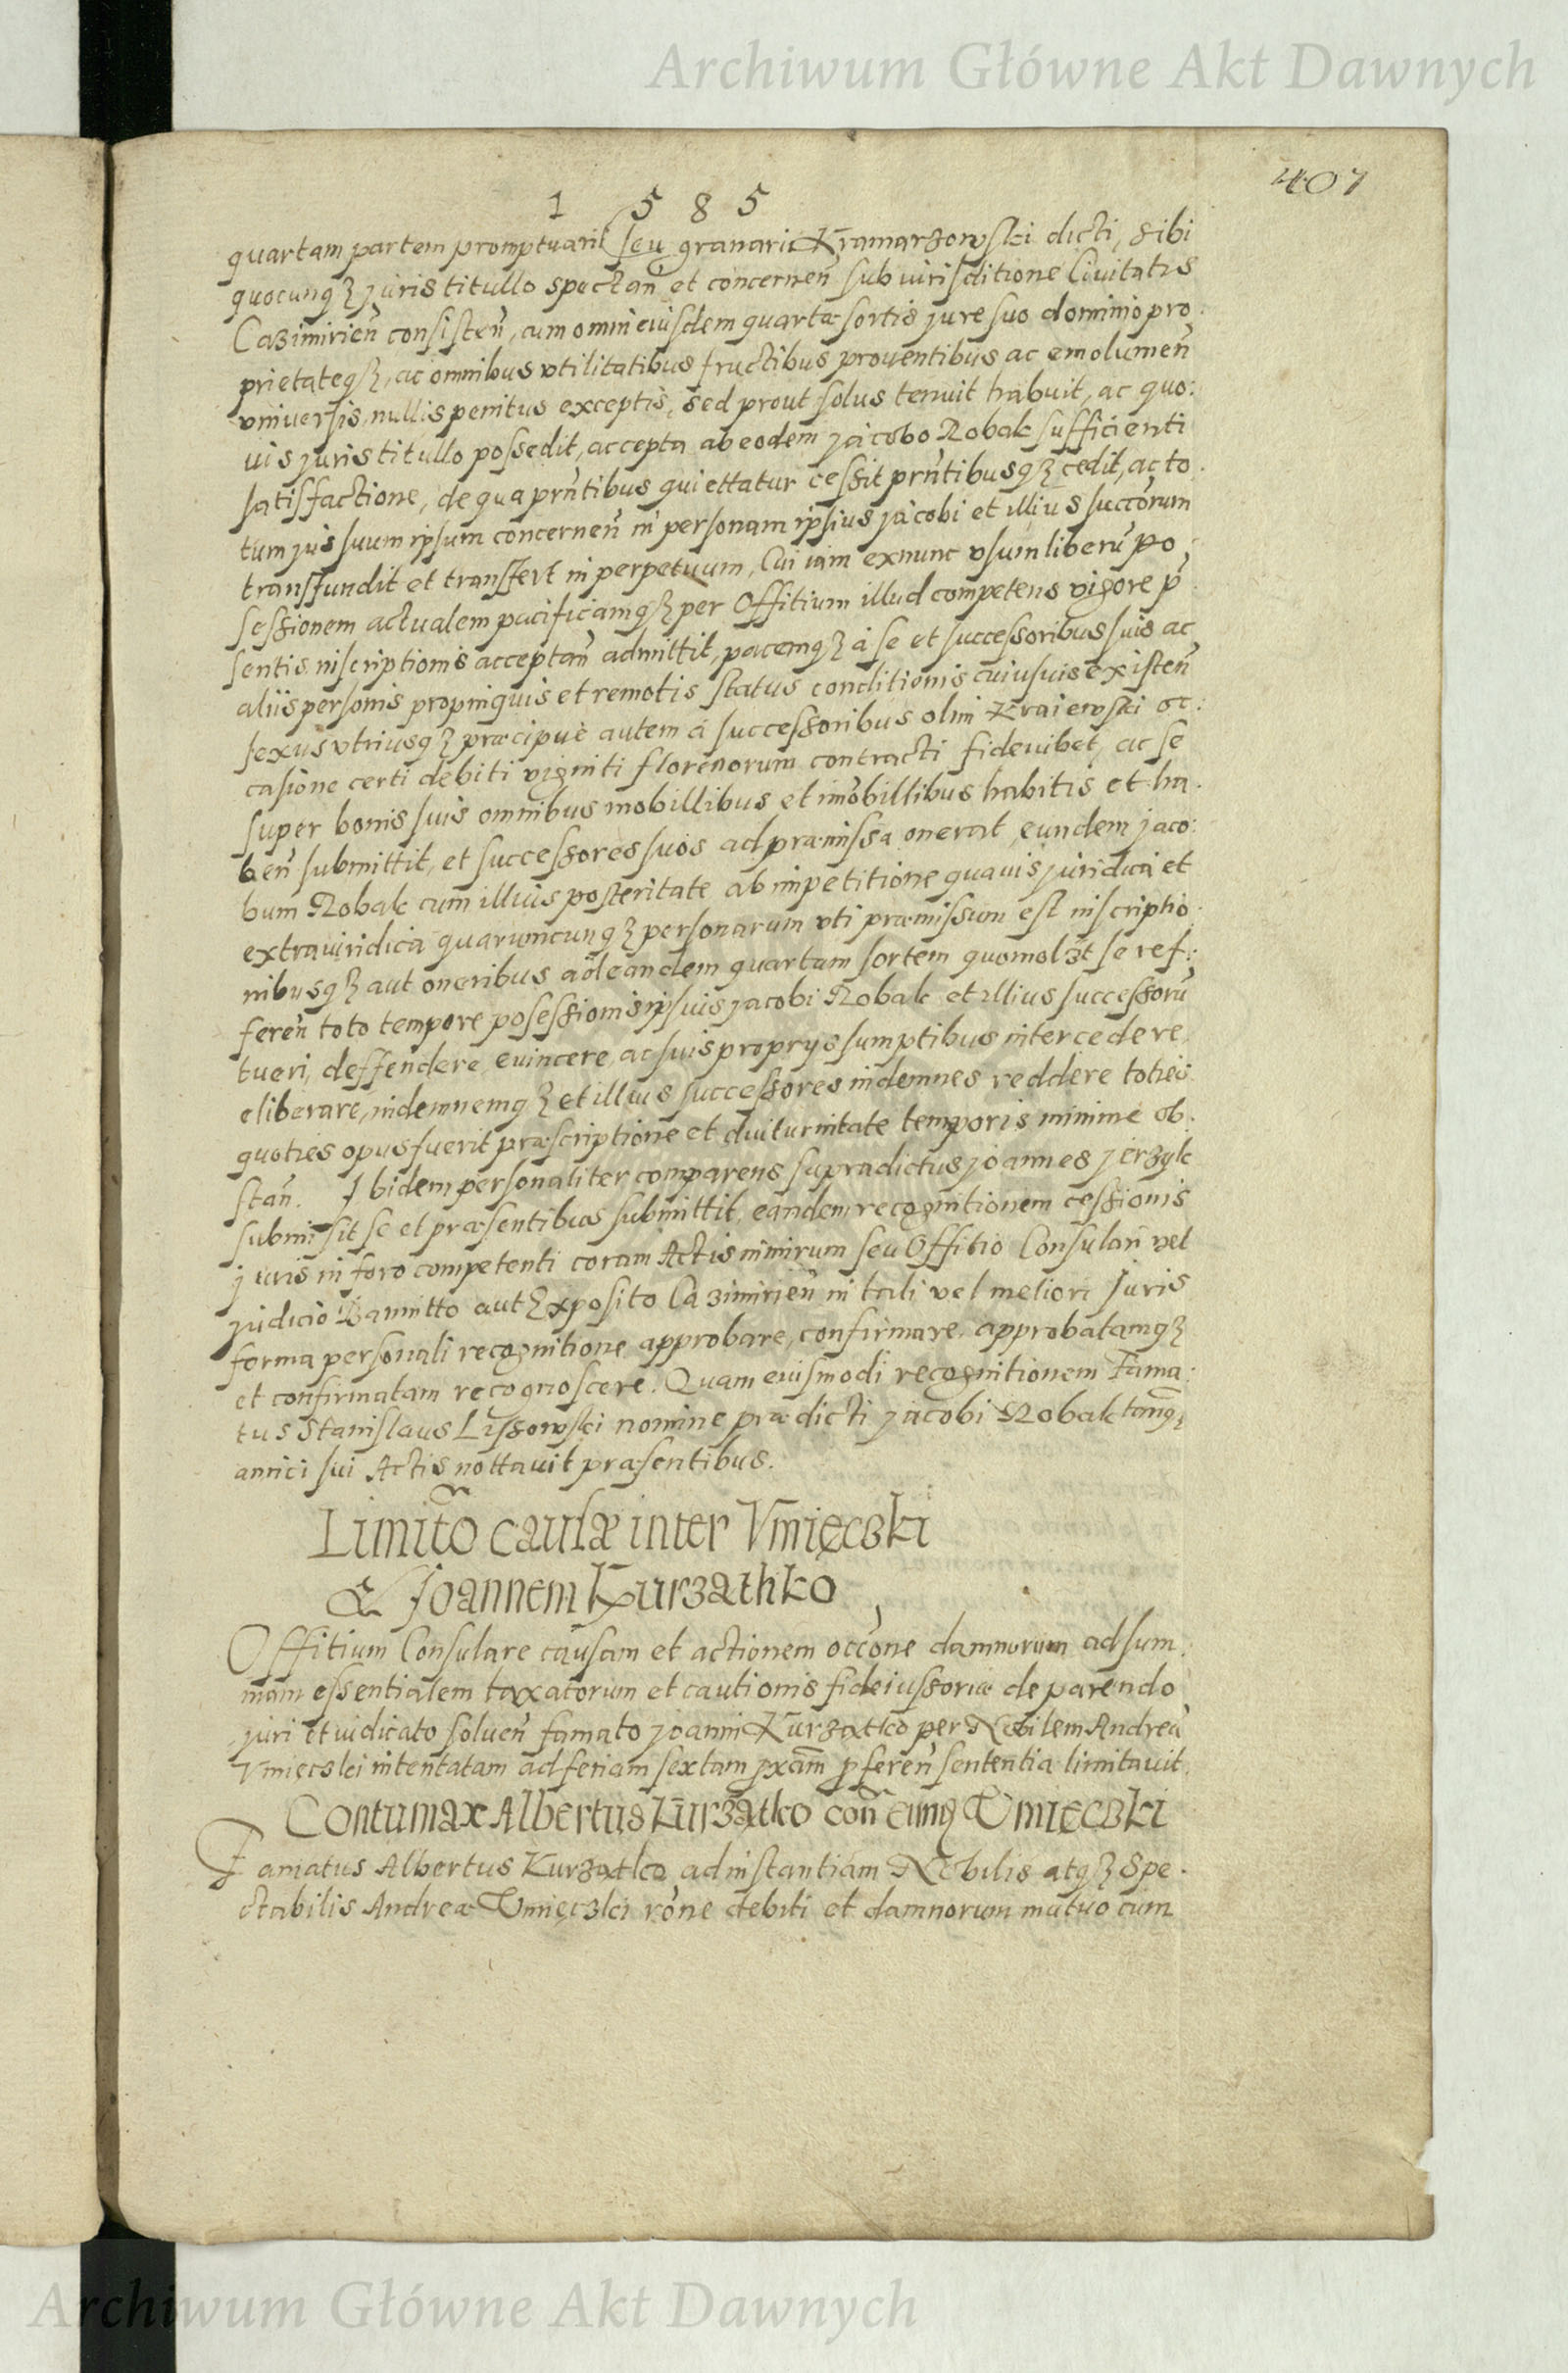 Archiwum Główne Akt Dawnych
407
1 5 8 5
quartam partem promptuarii seu granarii Kramarzowski dicti, sibi
quocunqȝ juris titullo spectan̄ et concernen̄ sub iurisditione Civitatis
Cazimirien̄ consisten̄, cum omni eiusdem quartæ sortis jure suo dominio pro:
prietateqȝ, ac omnibus vtilitatibus fructibus prouentibus ac emolumen̄
vniuersis, nullis penitus exceptis, sed prout solus tenuit habuit, ac quo:
uis juris titullo possedit, accepta ab eodem jacobo Robak sufficienti
satisfactione, de qua prn̄tibus quiettatur cessit prn̄tibusqȝ cedit, ac to:
tum jus suum ipsum concernen̄ in personam ipsius jacobi et illius succōrum
transfundit et transfert in perpetuum, Cui iam exnunc vsum liberū po:
sessionem actualem pacificamqȝ per Offitium illud competens vigore p̄:
sentis inscriptionis acceptan̄ admittit, pacemqȝ à se et successoribus suis ac
aliis personis propinquis et remotis status conditionis cuiusuis existen̄
sexus vtriusqȝ præcipuè autem à successoribus olim Kraiewski oc:
casione certi debiti viginti florenorum contracti fideiubet, ac se
super bonis suis omnibus mobillibus et im̄obillibus habitis et ha:
ben̄ submittit, et successores suos ad præmissa onerat, eundem jaco:
bum Robak cum illius posteritate ab impetitione quauis juridica et
extraiuridica quarumcunqȝ personarum vti præmissum est inscriptio:
nibusqȝ aut oneribus ad eandem quartam sortem quomolȝt se ref:
feren̄ toto tempore posessionis ipsius jacobi Robak et illius successorū
tueri, deffendere, euincere, ac suis proprys sumptibus intercedere,
eliberare, indemnemqȝ et illius successores indemnes reddere toties
quoties opus fuerit præscriptione et diuturnitate temporis minime ob:
stan̄. Ibidem personaliter comparens supradictus joannes jerzyk
submisit se et præsentibus submittit, eandem recognitionem cessionis
juris in foro competenti coram Actis nimirum seu Offitio Consulari vel
judicio Bannitto aut Exposito Cazimirien̄ in tali vel meliori Juris
forma personali recognitione approbare, confirmare, approbatamqȝ
et confirmatam recognoscere. Quam eiusmodi recognitionem Fama:
tus Stanislaus Lissowski nomine prædicti jacobi Robak tanqȝ
amici sui Actis nottauit præsentibus.
Limito causæ inter Vmięczki
& Joannem Kurzathko
Offitium Consulare causam et actionem occ̄one damnorum ad sum:
mam essentialem taxatorum et cautionis fideiussoriæ de parendo
juri et iudicato soluen̄ famato joanni Kurzatko per Nobilem Andreā
Vmięczki intentatam ad feriam sextam pxām pferen̄ sententia limitauit.
Contumax Albertus Kurzątko con̄ eunqȝ Vmięczki
Famatus Albertus Kurzatko ad instantiam Nobilis atqȝ Spe:
ctabilis Andreæ Vmięczki rōne debiti et damnorum mutuo cum
Archiwum Główne Akt Dawnych